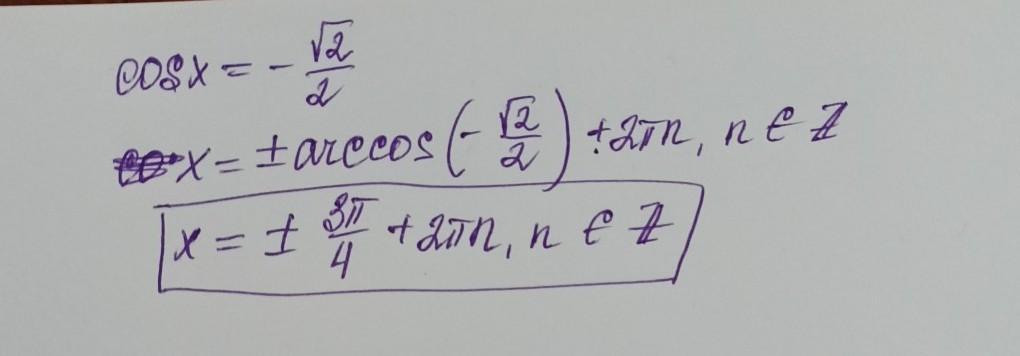 cosx = -√2/2
x = ±arccos(-√2/2) + 2πn, n ∈ Z
x = ± 3π/4 + 2πn, n ∈ Z